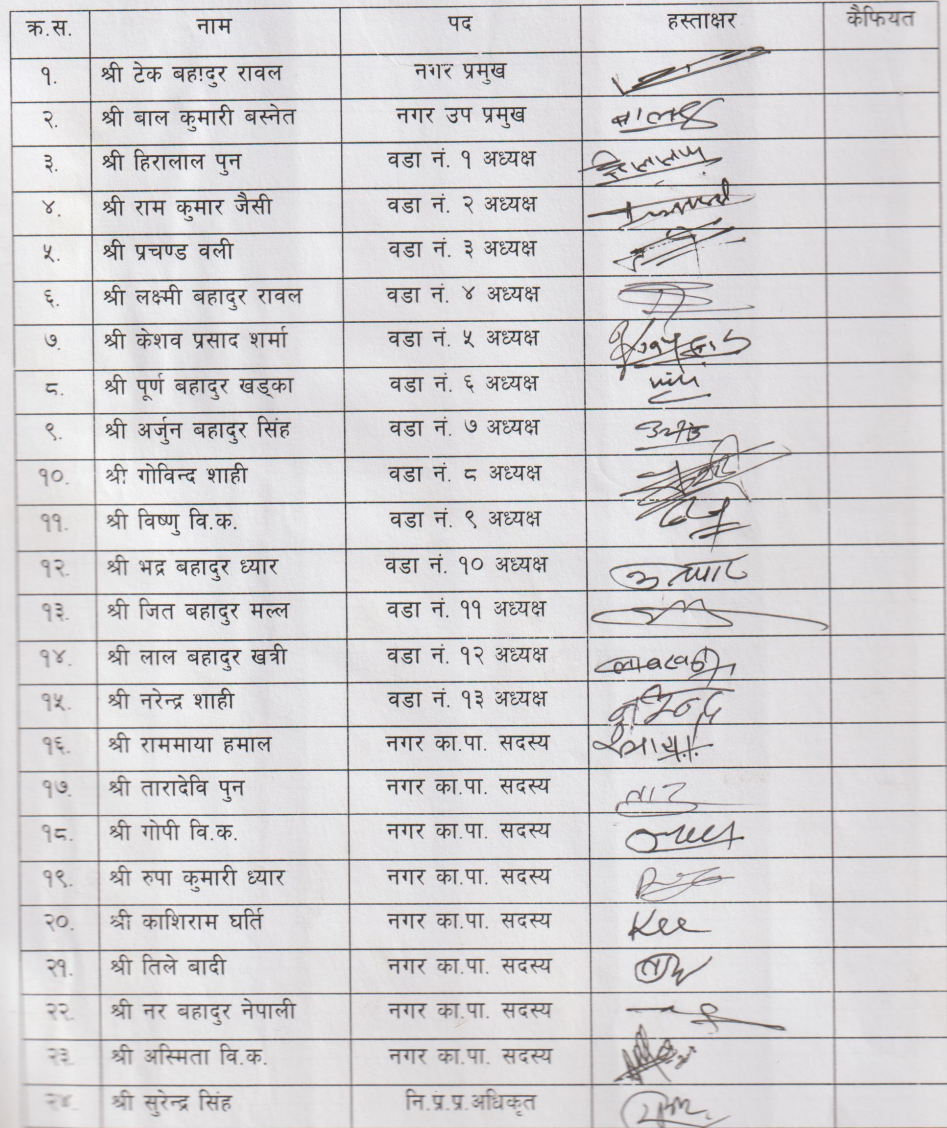 क्र.स. नाम पद हस्ताक्षर कैफियत
१. श्री टेक बहादुर रावल नगर प्रमुख
२. श्री बाल कुमारी बस्नेत नगर उप प्रमुख
३. श्री हिरालाल पुन वडा नं. १ अध्यक्ष
४. श्री राम कुमार जैसी वडा नं. २ अध्यक्ष
५. श्री प्रचण्ड वली वडा नं. ३ अध्यक्ष
६. श्री लक्ष्मी बहादुर रावल वडा नं. ४ अध्यक्ष
७. श्री केशव प्रसाद शर्मा वडा नं. ५ अध्यक्ष
८. श्री पूर्ण बहादुर खड्का वडा नं. ६ अध्यक्ष
९. श्री अर्जुन बहादुर सिंह वडा नं. ७ अध्यक्ष
१०. श्री गोविन्द शाही वडा नं. ८ अध्यक्ष
११. श्री विष्णु वि.क. वडा नं. ९ अध्यक्ष
१२. श्री भद्र बहादुर ध्यार वडा नं. १० अध्यक्ष
१३. श्री जित बहादुर मल्ल वडा नं. ११ अध्यक्ष
१४. श्री लाल बहादुर खत्री वडा नं. १२ अध्यक्ष
१५. श्री नरेन्द्र शाही वडा नं. १३ अध्यक्ष
१६. श्री राममाया हमाल नगर का.पा. सदस्य
१७. श्री तारादेवि पुन नगर का.पा. सदस्य
१८. श्री गोपी वि.क. नगर का.पा. सदस्य
१९. श्री रुपा कुमारी ध्यार नगर का.पा. सदस्य
२०. श्री काशिराम घर्ति नगर का.पा. सदस्य
२१. श्री तिले बादी नगर का.पा. सदस्य
२२. श्री नर बहादुर नेपाली नगर का.पा. सदस्य
२३. श्री अस्मिता वि.क. नगर का.पा. सदस्य
२४. श्री सुरेन्द्र सिंह नि.प्र.प्र.अधिकृत